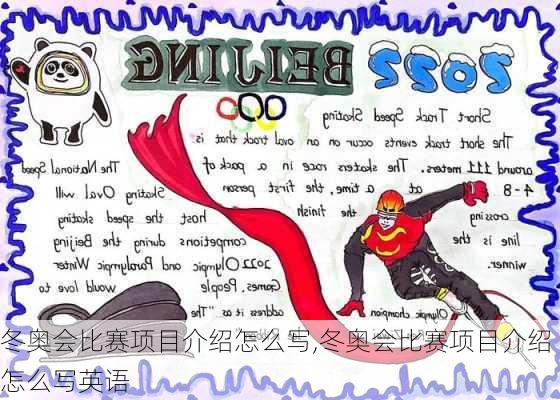 2022 BEIJING
Short Track Speed Skating
The short track events occur on an oval track that is
around 111 meters. The skaters race in a pack of
4-8 at a time, the first person
crossing the finish
line is the
winner.
The National Speed
Skating Oval will
host the speed skating
competitions during the Beijing
2022 Olympic and Paralympic Winter
Games. People would love to
address it as a "The
Olympic champion
冬奥会比赛项目介绍怎么写,冬奥会比赛项目介绍
怎么写英语